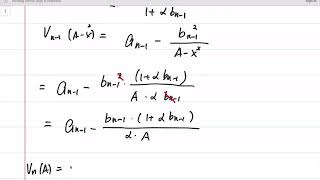 1 + αb_{n-1}
V_{n-1}(A-x^*) = a_{n-1} - \frac{b_{n-1}^2}{A-x^*}
= a_{n-1} - \frac{b_{n-1}^2 · (1+αb_{n-1})}{A · αb_{n-1}}
= a_{n-1} - \frac{b_{n-1} · (1+αb_{n-1})}{α · A}
V_n(A) =